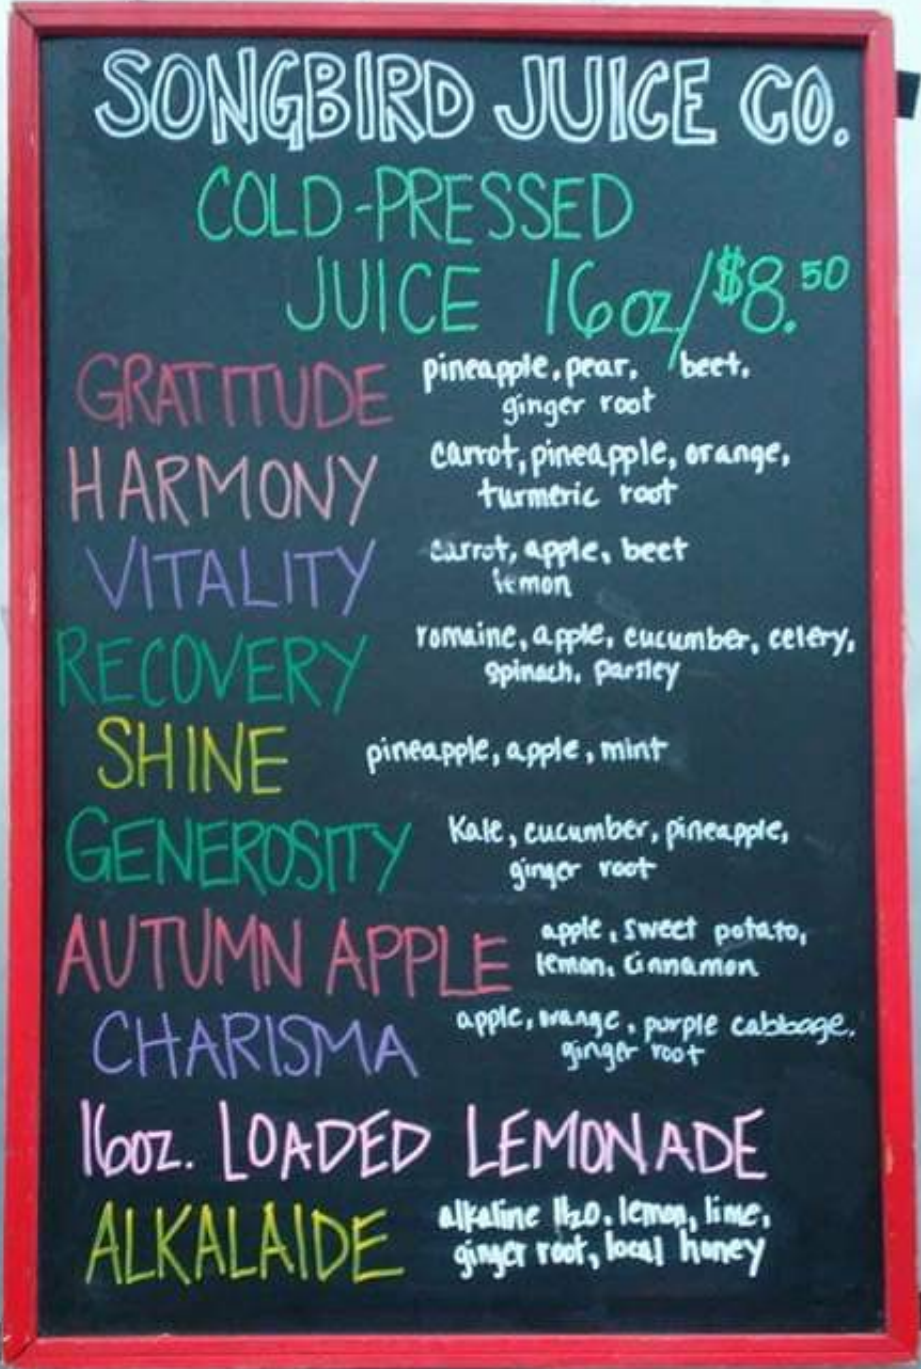 SONGBIRD JUICE CO.
COLD-PRESSED
JUICE 16oz/$8.50
GRATITUDE pineapple, pear, beet,
ginger root
HARMONY carrot, pineapple, orange,
turmeric root
VITALITY carrot, apple, beet
lemon
RECOVERY romaine, apple, cucumber, celery,
spinach, parsley
SHINE pineapple, apple, mint
GENEROSITY Kale, cucumber, pineapple,
ginger root
AUTUMN APPLE apple, sweet potato,
lemon, cinnamon
CHARISMA apple, orange, purple cabbage,
ginger root
16oz. LOADED LEMONADE
ALKALAIDE alkaline H2O, lemon, lime,
ginger root, local honey